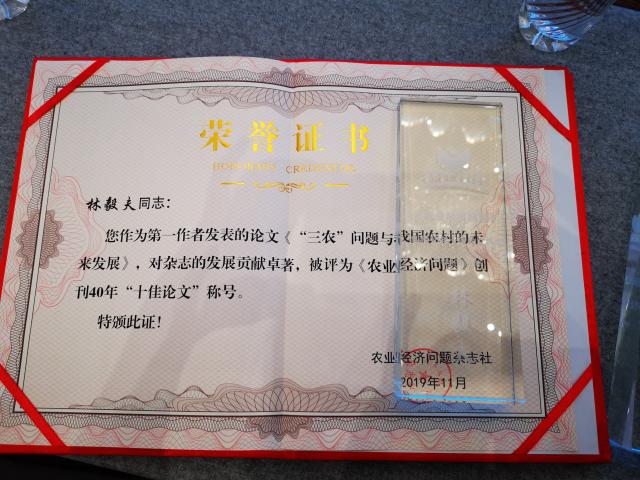 荣誉证书
HONORARY CREDENTIAL
林毅夫同志：
您作为第一作者发表的论文《“三农”问题与我国农村的未
来发展》，对杂志的发展贡献卓著，被评为《农业经济问题》创
刊40年“十佳论文”称号。
特颁此证！
农业经济问题杂志社
2019年11月